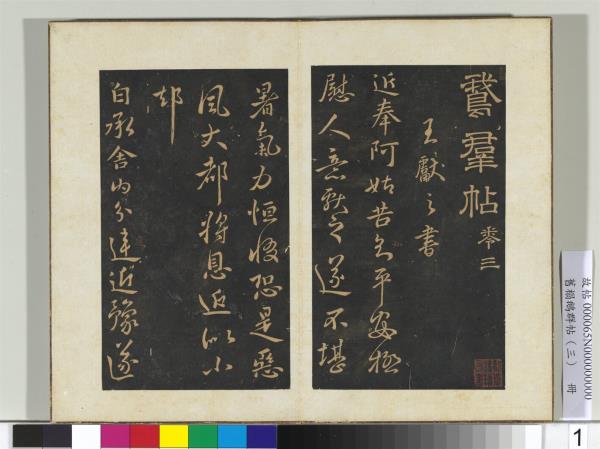 鵞羣帖 卷三
王獻之書
近奉阿姑告知平安極
慰人意獻之遂不堪
暑氣力恒惙恐是惡
風大都將息近似小
却
白承舍內分違近豫遂
故帖 000065N000000000
舊榻鵝群帖（三） 冊
1